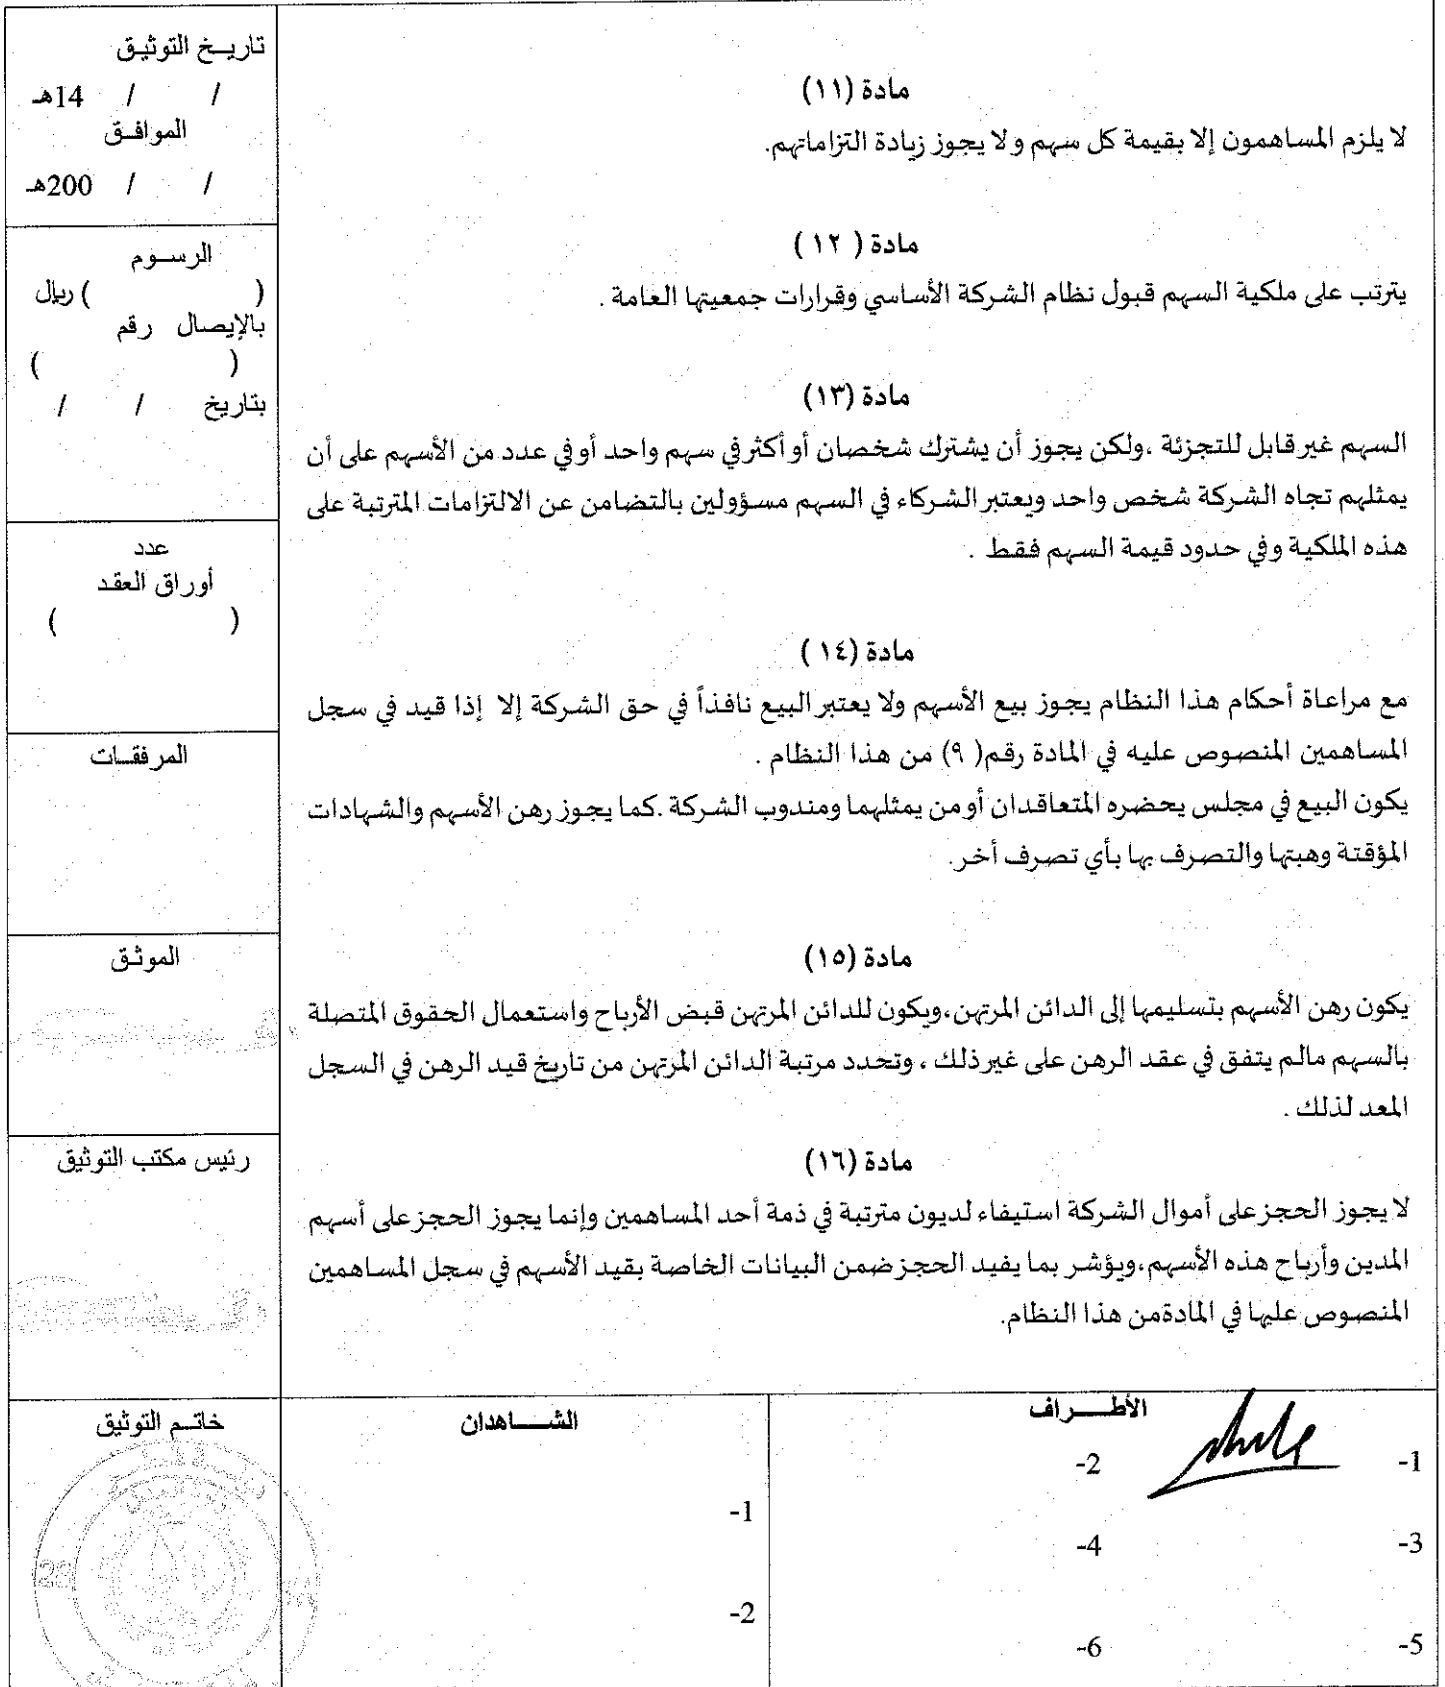 مادة (١١)
لا يلزم المساهمون إلا بقيمة كل سهم ولا يجوز زيادة التزاماتهم.
مادة ( ١٢ )
يترتب على ملكية السهم قبول نظام الشركة الأساسي وقرارات جمعيتها العامة .
مادة (١٣)
السهم غير قابل للتجزئة ،ولكن يجوز أن يشترك شخصان أو أكثر في سهم واحد أو في عدد من الأسهم على أن
يمثلهم تجاه الشركة شخص واحد ويعتبر الشركاء في السهم مسؤولين بالتضامن عن الالتزامات المترتبة على
هذه الملكية وفي حدود قيمة السهم فقط .
مادة (١٤ )
مع مراعاة أحكام هذا النظام يجوز بيع الأسهم ولا يعتبر البيع نافذاً في حق الشركة إلا إذا قيد في سجل
المساهمين المنصوص عليه في المادة رقم( ٩) من هذا النظام .
يكون البيع في مجلس يحضره المتعاقدان أو من يمثلهما ومندوب الشركة .كما يجوز رهن الأسهم والشهادات
المؤقتة وهبتها والتصرف بها بأي تصرف أخر.
مادة (١٥)
يكون رهن الأسهم بتسليمها إلى الدائن المرتهن،ويكون للدائن المرتهن قبض الأرباح واستعمال الحقوق المتصلة
بالسهم مالم يتفق في عقد الرهن على غير ذلك ، وتحدد مرتبة الدائن المرتهن من تاريخ قيد الرهن في السجل
المعد لذلك .
مادة (١٦)
لا يجوز الحجز على أموال الشركة استيفاء لديون مترتبة في ذمة أحد المساهمين وإنما يجوز الحجز على أسهم
المدين وأرباح هذه الأسهم،ويؤشر بما يفيد الحجز ضمن البيانات الخاصة بقيد الأسهم في سجل المساهمين
المنصوص عليها في المادةمن هذا النظام.
تاريـخ التوثيـق
/ / 14هـ
الموافـق
/ / 200هـ
الرســوم
( ) ريال
بالإيصال رقم
( )
بتاريخ / /
عدد
أوراق العقد
( )
المرفقــات
الموثـق
رئيس مكتب التوثيق
الأطــــراف
1-
2-
3-
4-
5-
6-
الشــــاهدان
1-
2-
خاتــم التوثيق